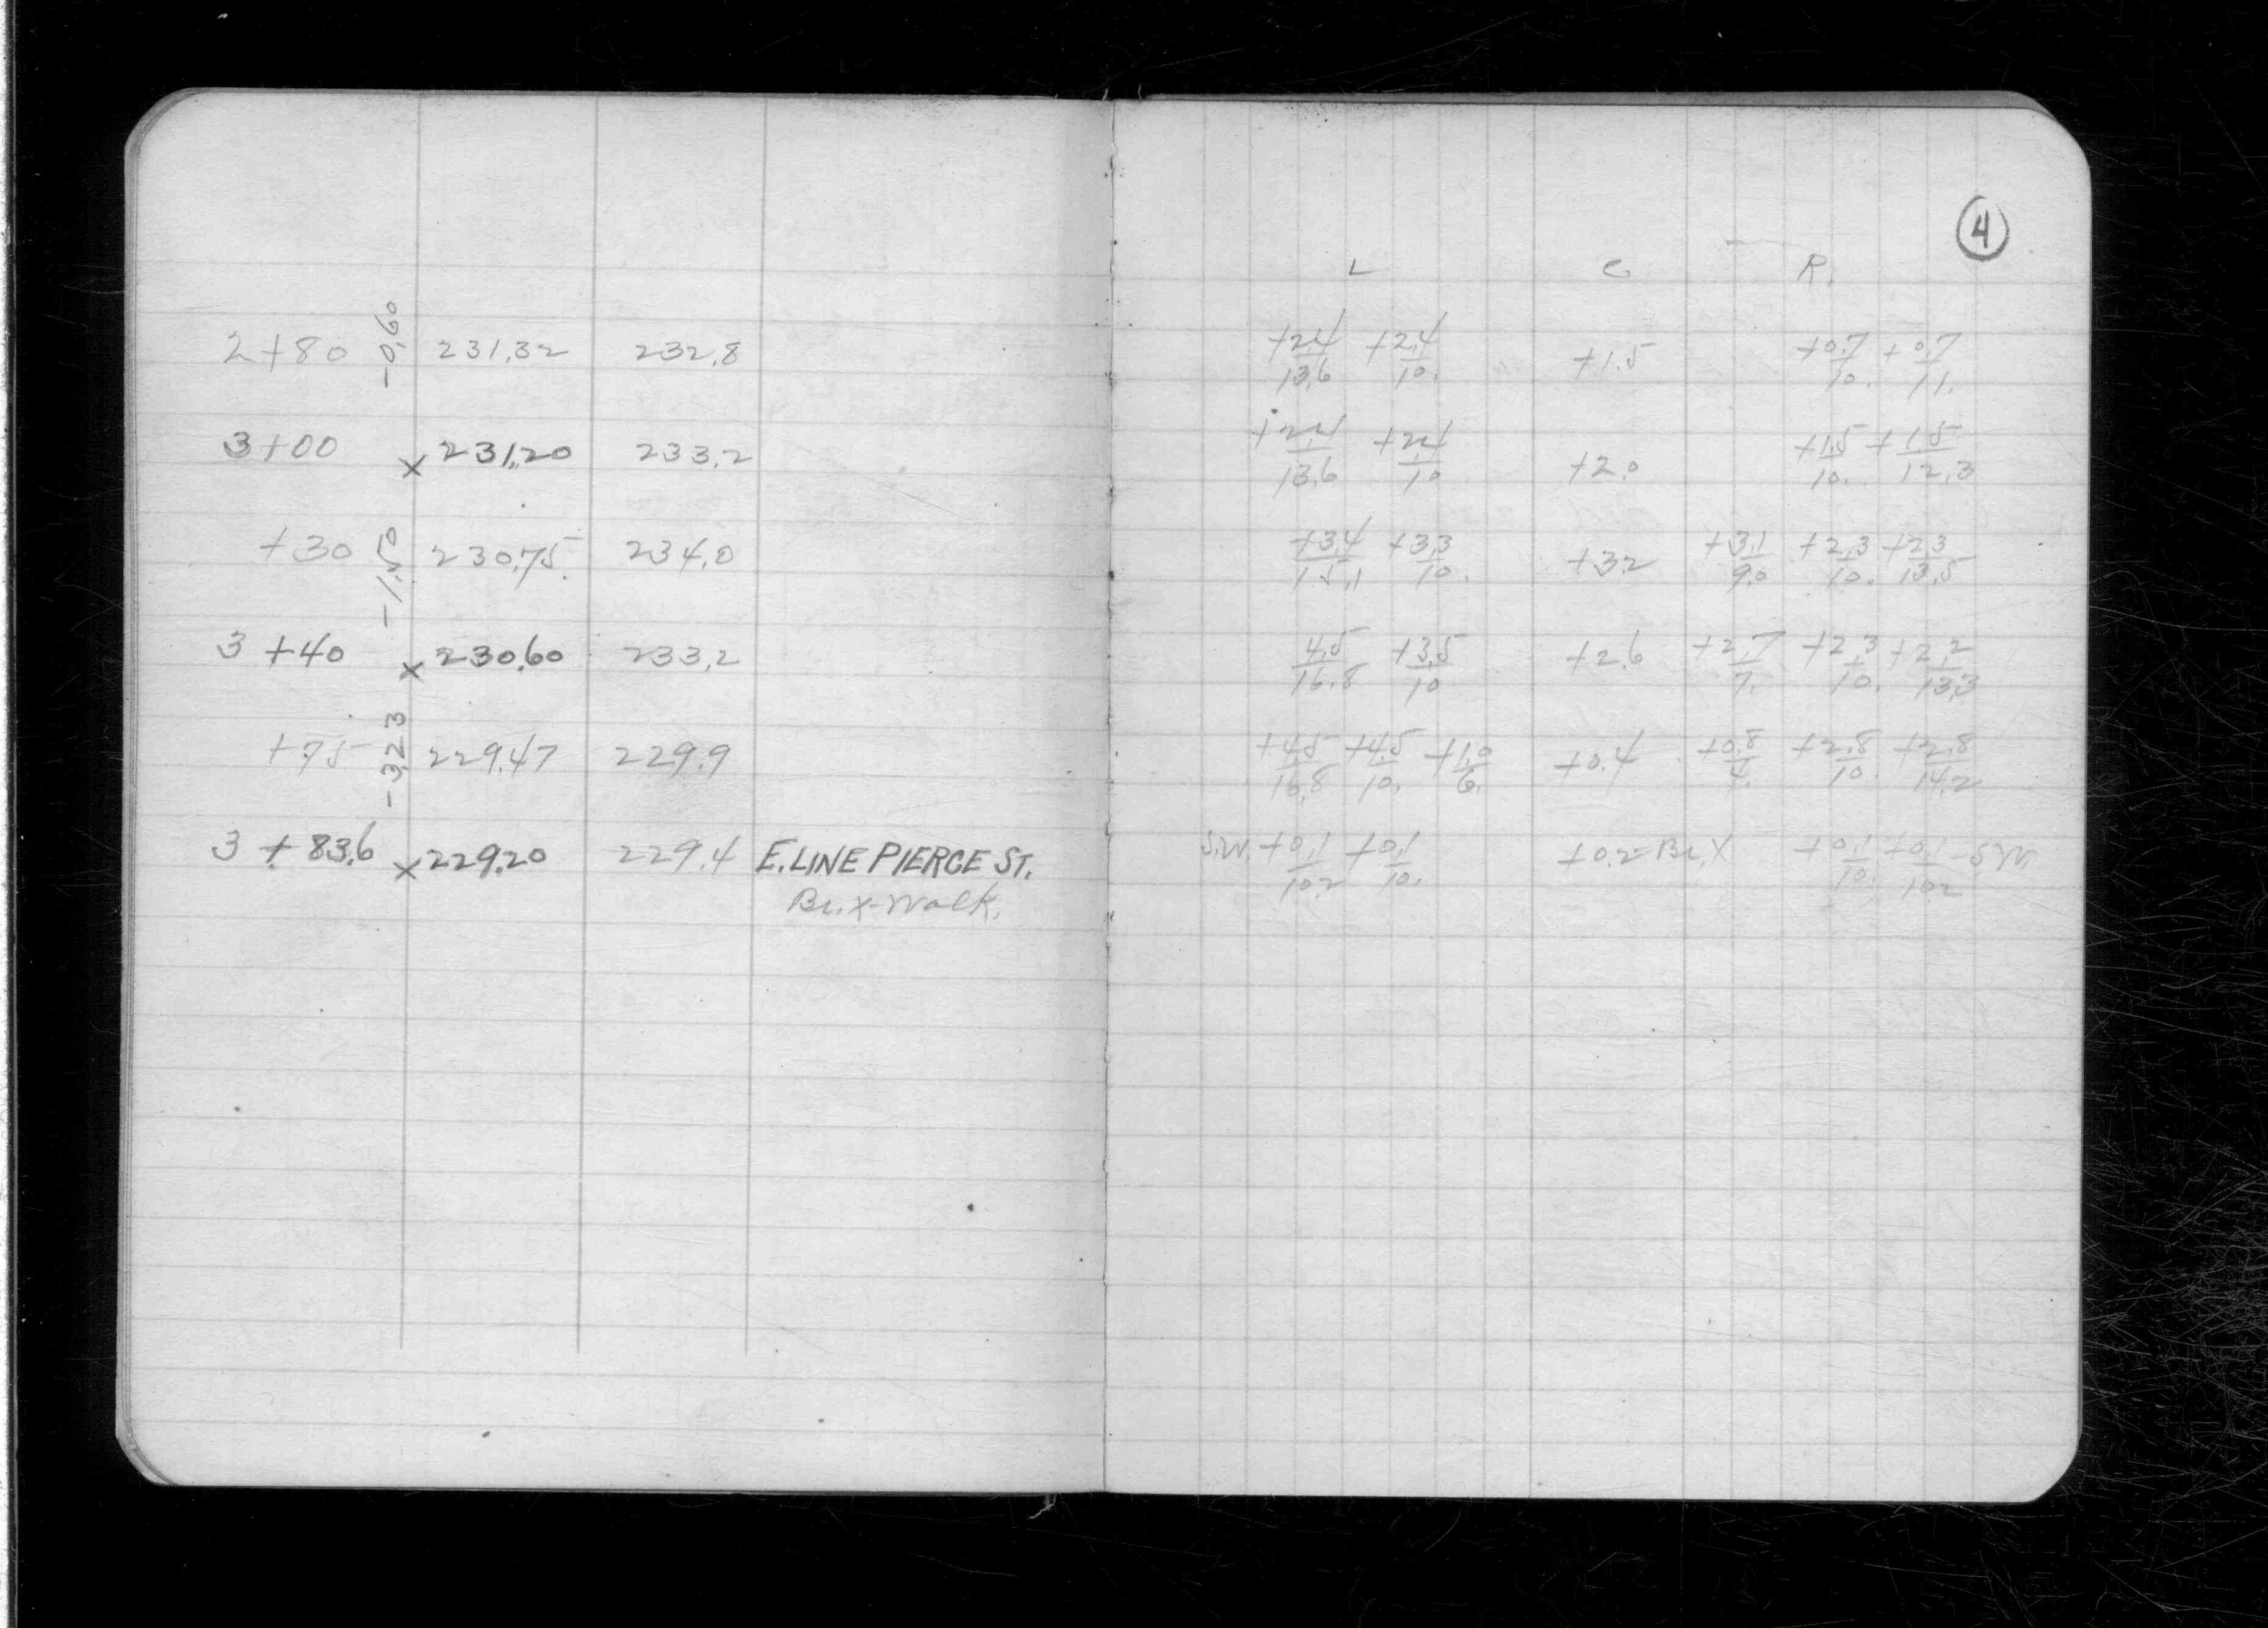 4
L C R.
2+80 -0.60 231.32 232.8 +2.4/13.6 +2.4/10. +1.5 +0.7/10. +0.7/11.
3+00 x 231.20 233.2 +2.4/13.6 +2.4/10 +2.0 +1.5/10. +1.5/12.3
+30 -1.50 230.75 234.0 +3.4/15.1 +3.3/10. +3.2 +3.1/9.0 +2.3/10. +2.3/13.5
3+40 x 230.60 233.2 4.5/16.8 +3.5/10 +2.6 +2.7/7. +2.3/10. +2.2/13.3
+75 -3.23 229.47 229.9 +4.5/16.8 +4.5/10. +1.0/6. +0.4 +0.8/4. +2.8/10. +2.8/14.2
3+83.6 x 229.20 229.4 E. LINE PIERCE ST. S.W. +0.1/10.2 +0.1/10. +0.2=Br.X +0.1/10. +0.1/10.2 -S.W.
Br. X-Walk.